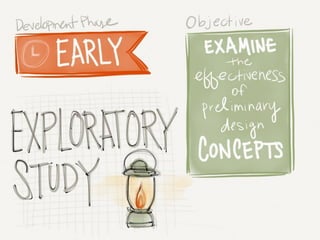 Development Phase
EARLY
Objective
EXAMINE
the
effectiveness
of
preliminary
design
CONCEPTS
EXPLORATORY
STUDY